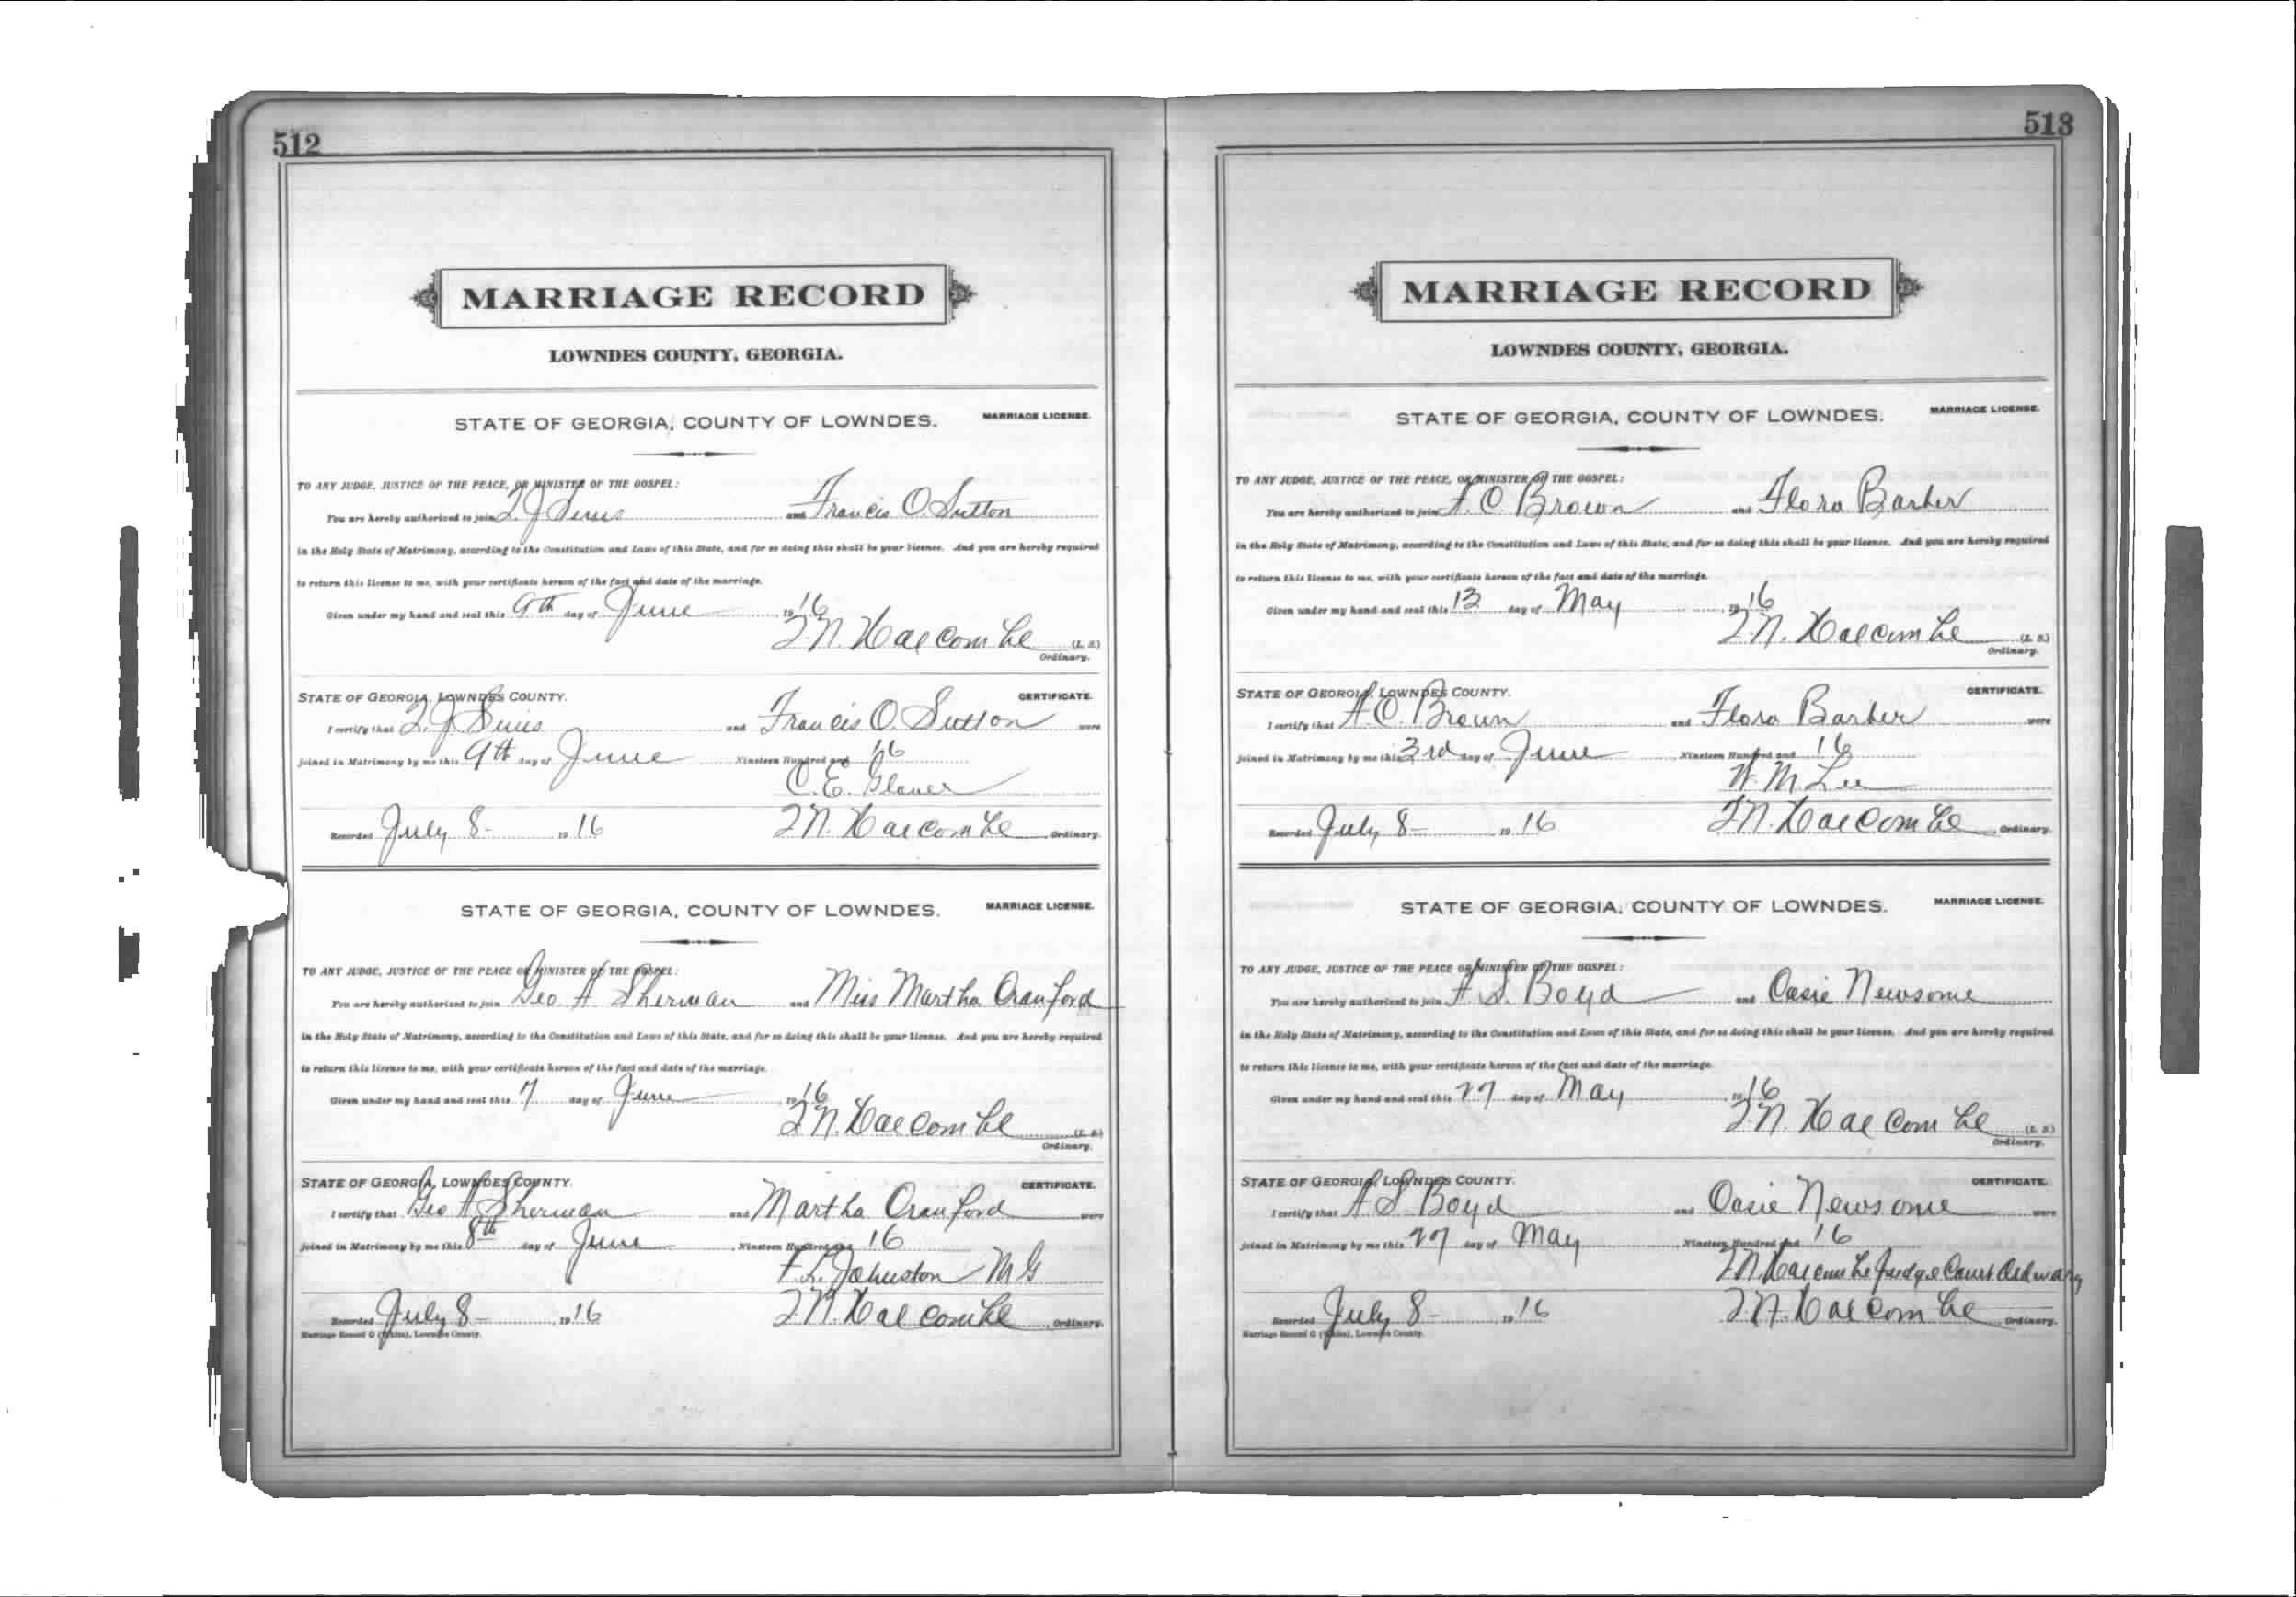 512
MARRIAGE RECORD
LOWNDES COUNTY, GEORGIA.
STATE OF GEORGIA, COUNTY OF LOWNDES. MARRIAGE LICENSE.
TO ANY JUDGE, JUSTICE OF THE PEACE, OR MINISTER OF THE GOSPEL:
You are hereby authorized to join J. Sims and Francis O. Sutton
in the Holy State of Matrimony, according to the Constitution and Laws of this State, and for so doing this shall be your license. And you are hereby required
to return this license to me, with your certificate hereon of the fact and date of the marriage.
Given under my hand and seal this 9th day of June 1916
N. Halcombe (L. S.)
Ordinary.
STATE OF GEORGIA, LOWNDES COUNTY. CERTIFICATE.
I certify that J. Sims and Francis O. Sutton were
joined in Matrimony by me this 9th day of June Nineteen Hundred and 16
C. E.
Recorded July 8- 1916 N. Halcombe, Ordinary.
STATE OF GEORGIA, COUNTY OF LOWNDES. MARRIAGE LICENSE.
TO ANY JUDGE, JUSTICE OF THE PEACE OR MINISTER OF THE GOSPEL:
You are hereby authorized to join Geo A Sherman and Miss Martha Cranford
in the Holy State of Matrimony, according to the Constitution and Laws of this State, and for so doing this shall be your license. And you are hereby required
to return this license to me, with your certificate hereon of the fact and date of the marriage.
Given under my hand and seal this 7 day of June 1916
N. Halcombe (L. S.)
Ordinary.
STATE OF GEORGIA, LOWNDES COUNTY. CERTIFICATE.
I certify that Geo A Sherman and Martha Cranford were
joined in Matrimony by me this 8th day of June Nineteen Hundred and 16
Johnston M G
Recorded July 8- 1916 N. Halcombe, Ordinary.
Marriage Record G (Whites), Lowndes County.
513
MARRIAGE RECORD
LOWNDES COUNTY, GEORGIA.
STATE OF GEORGIA, COUNTY OF LOWNDES. MARRIAGE LICENSE.
TO ANY JUDGE, JUSTICE OF THE PEACE, OR MINISTER OF THE GOSPEL:
You are hereby authorized to join A. C. Brown and Flora Barker
in the Holy State of Matrimony, according to the Constitution and Laws of this State, and for so doing this shall be your license. And you are hereby required
to return this license to me, with your certificate hereon of the fact and date of the marriage.
Given under my hand and seal this 13 day of May 1916
N. Halcombe (L. S.)
Ordinary.
STATE OF GEORGIA, LOWNDES COUNTY. CERTIFICATE.
I certify that A. C. Brown and Flora Barker were
joined in Matrimony by me this 3rd day of June Nineteen Hundred and 16
W. M Lee
Recorded July 8- 1916 N. Halcombe, Ordinary.
STATE OF GEORGIA, COUNTY OF LOWNDES. MARRIAGE LICENSE.
TO ANY JUDGE, JUSTICE OF THE PEACE OR MINISTER OF THE GOSPEL:
You are hereby authorized to join A. S. Boyd and Ossie Newsome
in the Holy State of Matrimony, according to the Constitution and Laws of this State, and for so doing this shall be your license. And you are hereby required
to return this license to me, with your certificate hereon of the fact and date of the marriage.
Given under my hand and seal this 27 day of May 1916
N. Halcombe (L. S.)
Ordinary.
STATE OF GEORGIA, LOWNDES COUNTY. CERTIFICATE.
I certify that A S. Boyd and Ossie Newsome were
joined in Matrimony by me this 27 day of May Nineteen Hundred and 16
N. Halcombe Judge Court Ordinary
Recorded July 8- 1916 N. Halcombe, Ordinary.
Marriage Record G (Whites), Lowndes County.